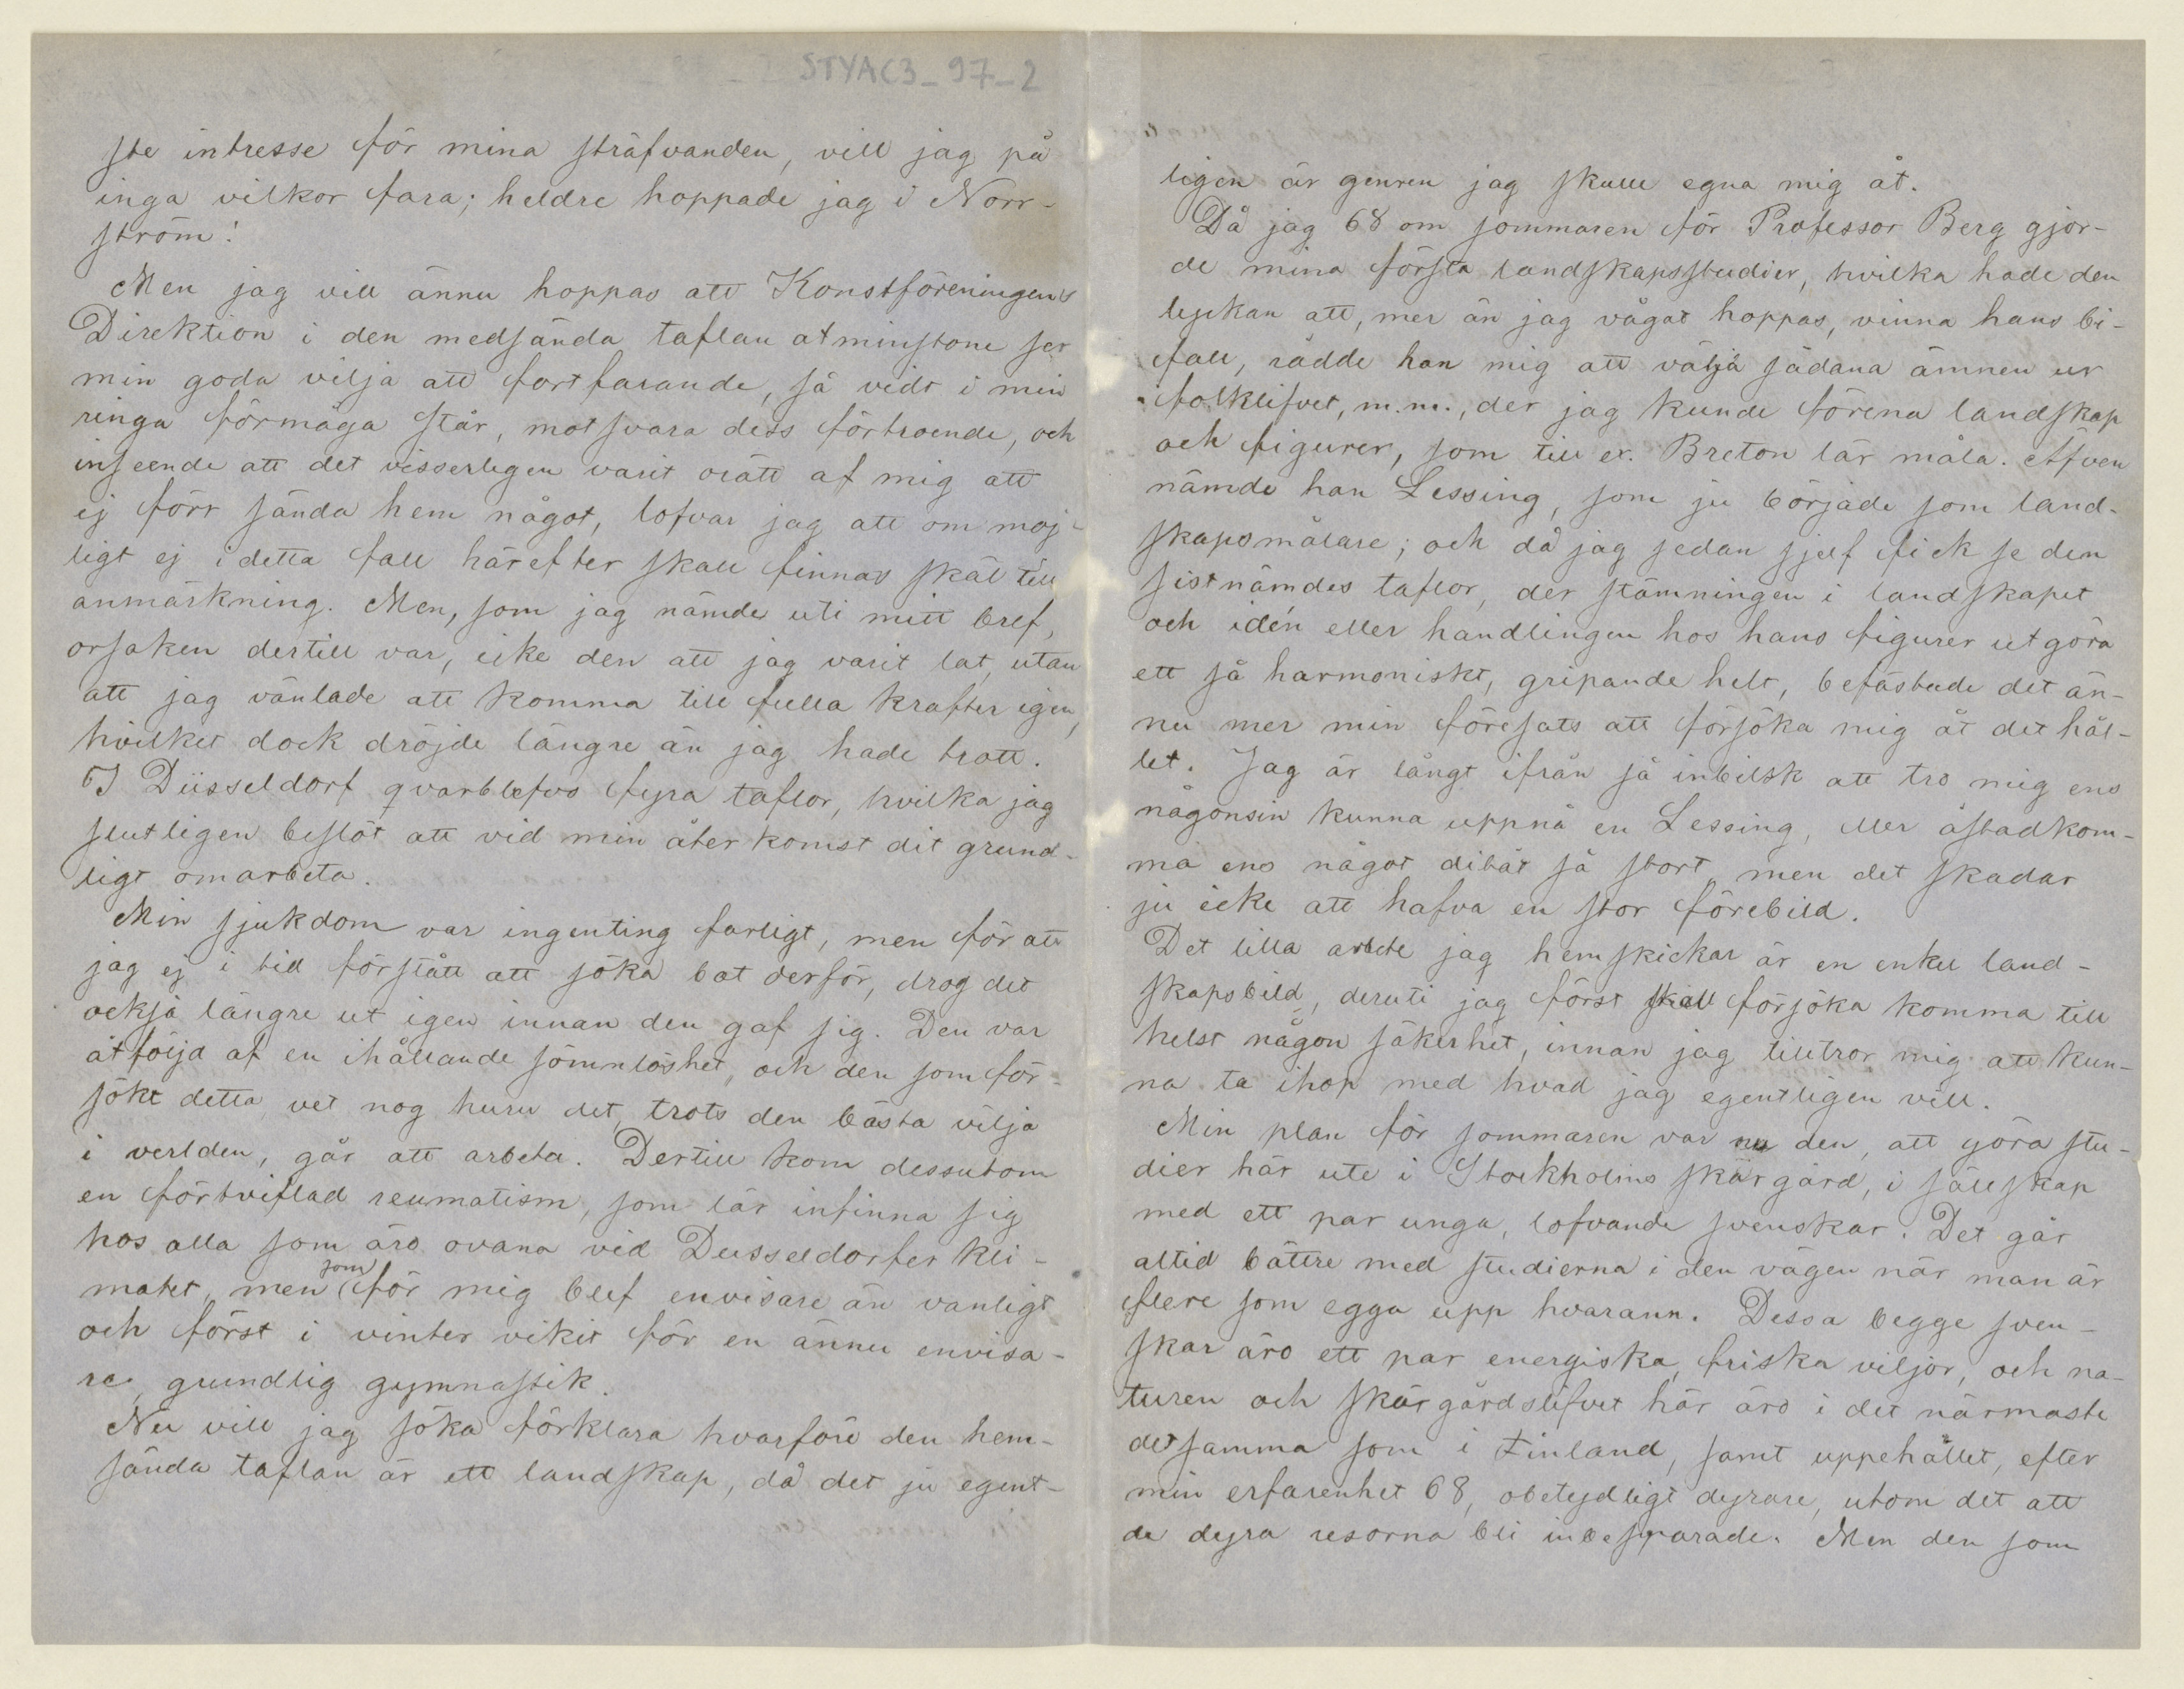 STYAC3_97_2
ste intresse för mina sträfvanden, vill jag på
inga vilkor fara; heldre hoppade jag i Norr-
ström!
Men jag vill ännu hoppas att Konstföreningens
Direktion i den medsända taflan atminstone ser
min goda vilja att fortfarande, så vidt i min
ringa förmåga står, motsvara dess förtroende, och
inseende att det visserligen varit orätt af mig att
ej förr sända hem något, lofvar jag att om möj-
ligt ej i detta fall härefter skall finnas skäl till
anmärkning. Men, som jag nämde uti mitt bref,
orsaken dertill var, icke den att jag varit lat, utan
att jag väntade att komma till fulla krafter igen,
hvilket dock dröjde längre än jag hade trott.
I Düsseldorf qvarblefvo fyra taflor, hvilka jag
slutligen beslöt att vid min återkomst dit grund-
ligt omarbeta.
Min sjukdom var ingenting farligt, men för att
jag ej i tid förstått att söka bot derför, drog det
också längre ut igen innan den gaf sig. Den var
åtföljd af en ihållande sömnlöshet, och den som för-
sökt detta vet nog huru det, trots den bästa vilja
i verlden, går att arbeta. Dertill kom dessutom
en förtviflad reumatism, som lär infinna sig
hos alla som äro ovana vid Dusseldorfer kli-
matet, men som för mig blef envisare än vanligt
och först i vinter vikit för en ännu envisa-
re, grundlig gymnastik.
Nu vill jag söka förklara hvarföre den hem-
sända taflan är ett landskap, då det ju egent-
ligen är genren jag skulle egna mig åt.
Då jag 68 om sommaren för Professor Berg gjor-
de mina första landskapsstudier, hvilka hade den
lyckan att, mer än jag vågat hoppas, vinna hans bi-
fall, rådde han mig att välja sådana ämnen ur
folklifvet, m.m., der jag kunde förena landskap
och figurer, som till ex. Breton lär måla. Äfven
nämde han Lessing, som ju började som land-
skapsmålare; och då jag sedan sjelf fick se den
sistnämdes taflor, der stämningen i landskapet
och idén eller handlingen hos hans figurer utgöra
ett så harmoniskt, gripande helt, befästade det än-
nu mer min föresats att försöka mig åt det hål-
let. Jag är långt ifrån så inbilsk att tro mig ens
någonsin kunna uppnå en Lessing, eller åstadkom-
ma ens något ditåt så stort, men det skadar
ju icke att hafva en stor förebild.
Det lilla arbete jag hemskickar är en enkel land-
skapsbild, deruti jag först skall försöka komma till
helst någon säkerhet, innan jag tilltror mig att kun-
na ta ihop med hvad jag egentligen vill.
Min plan för sommaren var nu den, att göra stu-
dier här ute i Stockholms skärgård, i sällskap
med ett par unga, lofvande svenskar. Det går
altid bättre med studierna i den vägen när man är
flere som egga upp hvarann. Dessa begge sven-
skar äro ett par energiska, friska viljor, och na-
turen och skärgårdslifvet här äro i det närmaste
detsamma som i Finland, samt uppehållet, efter
min erfarenhet 68, obetydligt dyrare, utom det att
de dyra resorna bli inbesparade. Men den som